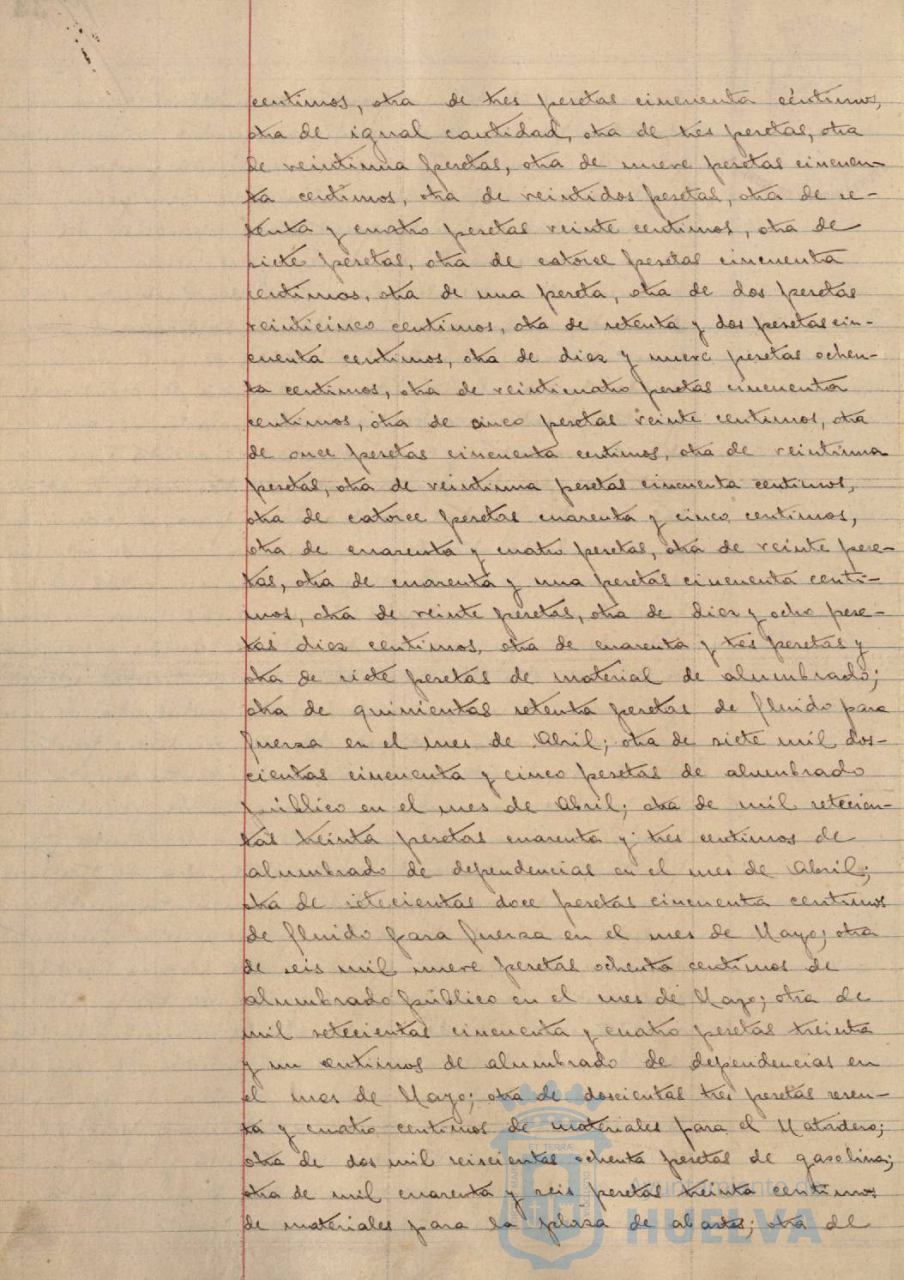 centimos, otra de tres pesetas cincuenta céntimos,
otra de igual cantidad, otra de tres pesetas, otra
de veintiuna pesetas, otra de nueve pesetas cincuen-
ta centimos, otra de veintidos pesetas, otra de se-
tenta y cuatro pesetas veinte centimos, otra de
siete pesetas, otra de catorce pesetas cincuenta
centimos, otra de una peseta, otra de dos pesetas
veinticinco centimos, otra de setenta y dos pesetas cin-
cuenta centimos, otra de diez y nueve pesetas ochen-
ta centimos, otra de veinticuatro pesetas cincuenta
centimos, otra de cinco pesetas veinte centimos, otra
de once pesetas cincuenta centimos, otra de veintiuna
pesetas, otra de veintiuna pesetas cincuenta centimos,
otra de catorce pesetas cuarenta y cinco centimos,
otra de cuarenta y cuatro pesetas, otra de veinte pese-
tas, otra de cuarenta y una pesetas cincuenta centi-
mos, otra de veinte pesetas, otra de diez y ocho pese-
tas diez centimos, otra de cuarenta y tres pesetas y
otra de siete pesetas de material de alumbrado;
otra de quinientas setenta pesetas de fluido para
fuerza en el mes de Abril; otra de siete mil dos-
cientas cincuenta y cinco pesetas de alumbrado
público en el mes de Abril; otra de mil setecien-
tas treinta pesetas cuarenta y tres centimos de
alumbrado de dependencias en el mes de Abril;
otra de setecientas doce pesetas cincuenta centimos
de fluido para fuerza en el mes de Mayo; otra
de seis mil nueve pesetas ochenta centimos de
alumbrado público en el mes de Mayo; otra de
mil setecientas cincuenta y cuatro pesetas treinta
y un centimos de alumbrado de dependencias en
el mes de Mayo; otra de doscientas tres pesetas sesen-
ta y cuatro centimos de materiales para el Matadero;
otra de dos mil seiscientas ochenta pesetas de gasolina;
otra de mil cuarenta y seis pesetas treinta centimos
de materiales para la plaza de abastos; otra de
Ayuntamiento de
HUELVA